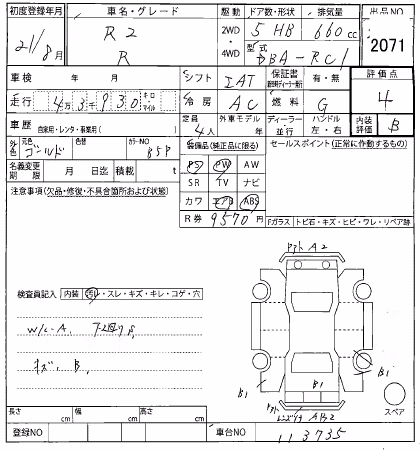 初度登録年月 車名・グレード 駆動 ドア数・形状 排気量 出品NO
21/8月 R2 R 2WD ・ 4WD 5 HB 660cc 2071
型式 DBA-RC1
車検 年 月 シフト IAT 保証書 有・無 評価点 4
走行 4万3千930 キロ マイル 冷房 AC 燃料 G
車歴 自家用・レンタ・事業用( ) 定員 4人 外車モデル 年 ディーラー・並行 ハンドル 左・右 内装評価 B
外色 元色 ゴールド 色替 カラーNO 85P 装備品(純正品に限る) セールスポイント(正常に作動するもの)
名義変更期限 月 日迄 積載 t PS PW AW
注意事項(欠品・修復・不具合箇所および状態) SR TV ナビ
カワ エアB ABS
R券 9570円 Fガラス トビ石・キズ・ヒビ・ワレ・リペア跡
A2
検査員記入 内装 汚レ・スレ・キズ・キレ・コゲ・穴
W/C-A
キズ B
B1
B1
A B2
スペア
長さ cm 幅 cm 高さ cm
登録NO 車台NO 113735